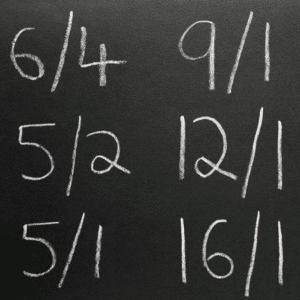 6/4 9/1
5/2 12/1
5/1 16/1